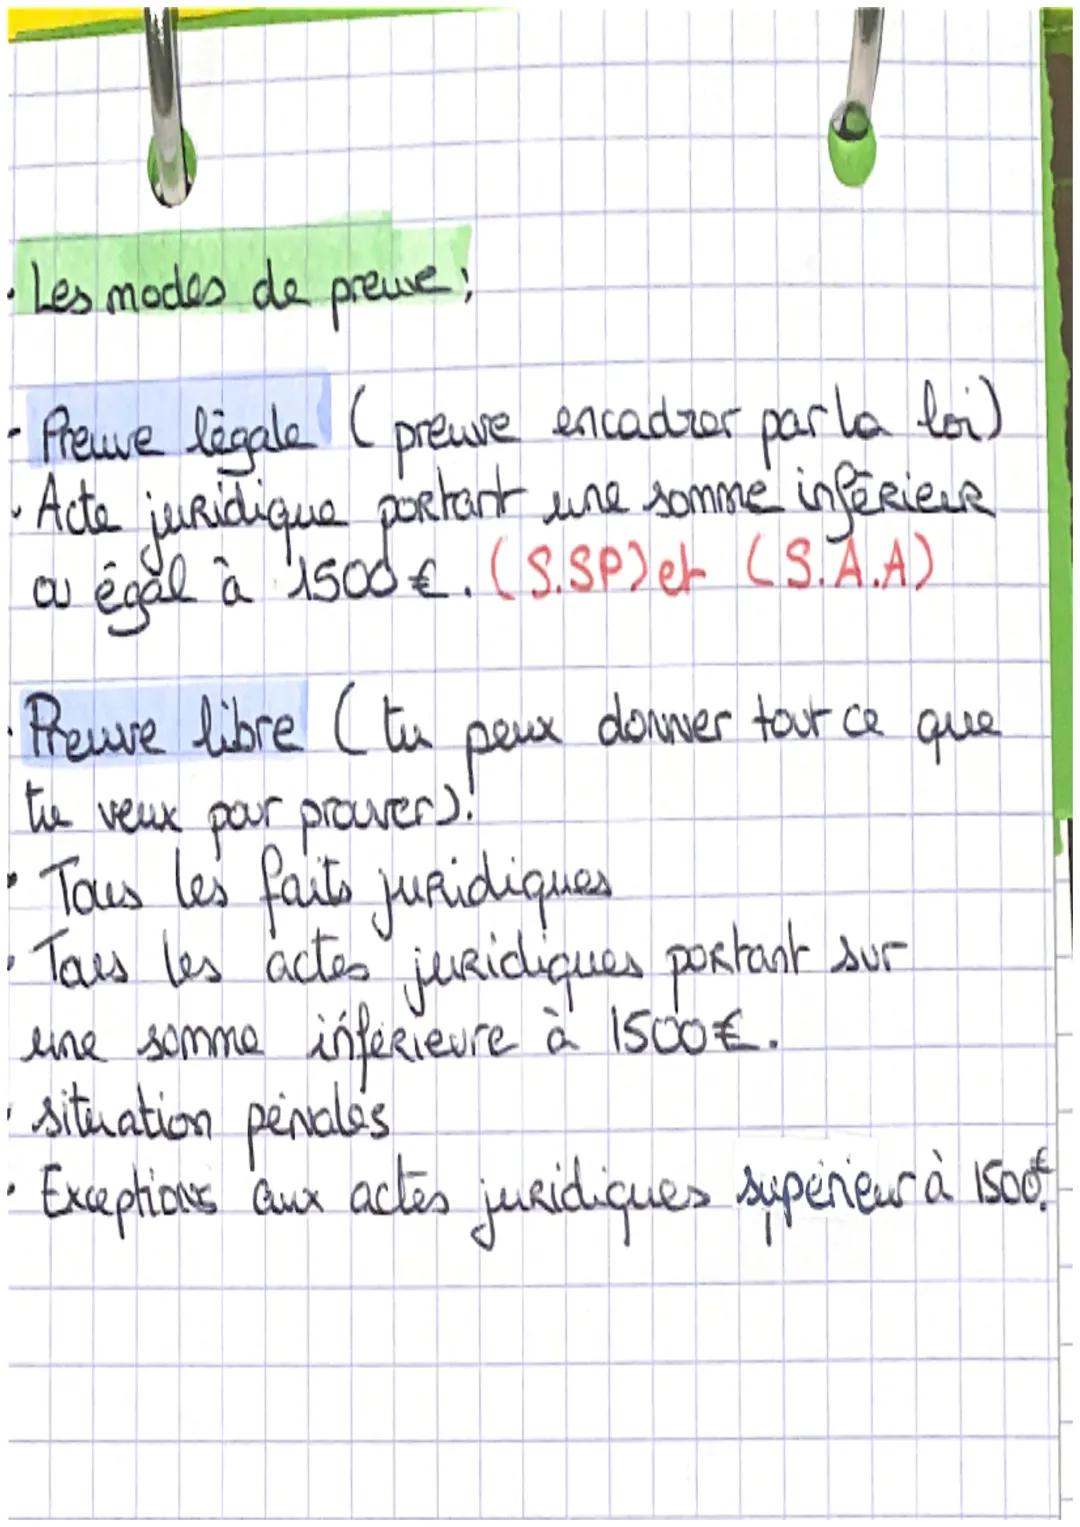 • Les modes de preuve :
- Preuve légale ( preuve encadrer par la loi)
• Acte juridique portant une somme inférieur
ou égal à 1500€. (S.SP) et (S.A.A)
• Preuve libre ( tu peux donner tout ce que
tu veux pour prouver).
• Tous les faits juridiques
• Tous les actes juridiques portant sur
une somme inférieure à 1500€.
• situation pénales
• Exceptions aux actes juridiques supérieur à 1500€.